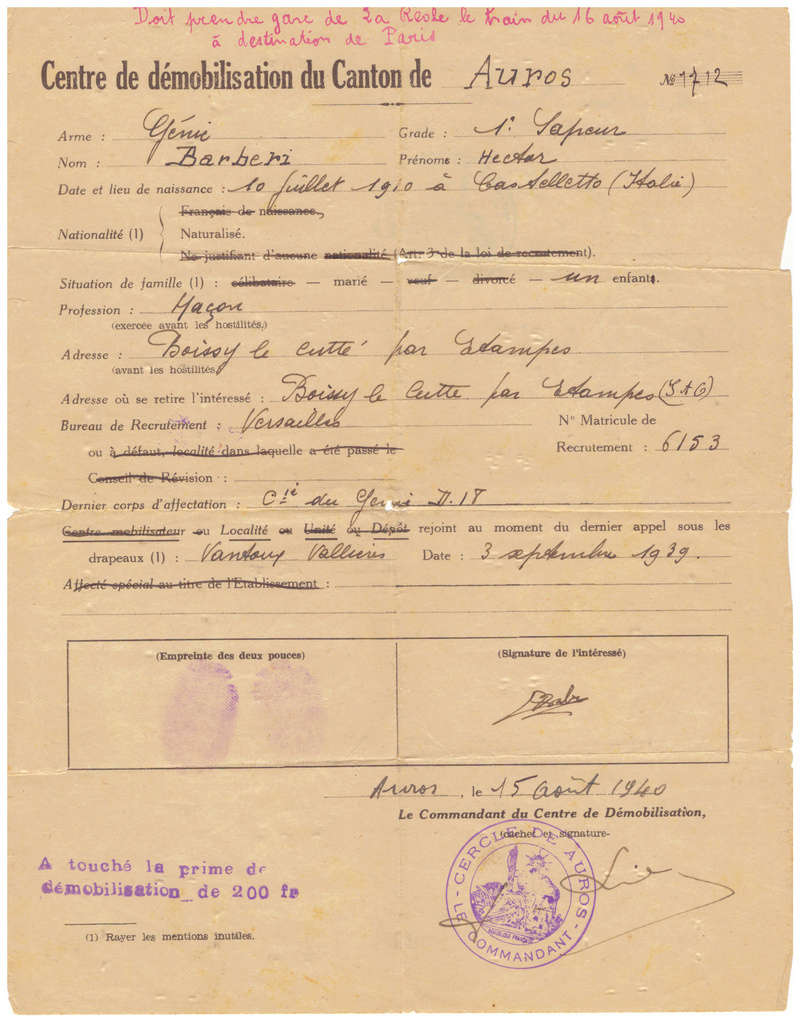 Doit prendre gare de La Réole le train du 16 août 1940
à destination de Paris
Centre de démobilisation du Canton de Auros No 1712
Arme : Génie Grade : 1e Sapeur
Nom : Barberi Prénoms : Hector
Date et lieu de naissance : 10 Juillet 1910 à Castelletto (Italie)
Français de naissance.
Nationalité (1) Naturalisé.
Ne justifiant d'aucune nationalité (Art. 3 de la loi de recrutement).
Situation de famille (1) : célibataire — marié — veuf — divorcé — un enfants.
Profession : Maçon
(exercée avant les hostilités.)
Adresse : Boissy le Cutté par Etampes
(avant les hostilités)
Adresse où se retire l'intéressé : Boissy le Cutte par Etampes (S & O)
Bureau de Recrutement : Versailles N° Matricule de
ou à défaut, localité dans laquelle a été passé le Recrutement : 6153
Conseil de Révision :
Dernier corps d'affectation : Cie du Génie D.18
Centre mobilisateur ou Localité ou Unité ou Dépôt rejoint au moment du dernier appel sous les
drapeaux (1) : Vantoux Vallieres Date : 3 septembre 1939.
Affecté spécial au titre de l'Etablissement :
(Empreinte des deux pouces) (Signature de l'intéressé)
Auros, le 15 Août 1940
Le Commandant du Centre de Démobilisation,
(cachet et signature-
A touché la prime de
démobilisation de 200 fr
LE COMMANDANT - CERCLE DE AUROS -
(1) Rayer les mentions inutiles.